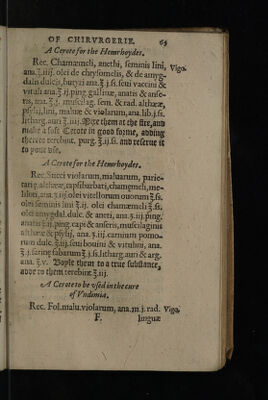 OF CHIRVRGERIE. 65
A Cerote for the Hemrhoydes.
Rec. Chamæmeli, anethi, seminis lini, Vigo.
ana.ʒ.iiij. olei de chrysomelis, & de amyg-
dalis dulcis, butyri ana.ʒ.j.ſs. seui vaccini &
vituli ana.ʒ.ij. ping. gallinæ, anatis & anse-
ris, ana.ʒ.j. muscilag. sem. & rad. altheæ,
psylij, lini, maluæ & violariæ, ana. lib.j.ſs.
litharg. auri ʒ.iiij. Mixe them at the fire, and
make a soft Cerote in good forme, adding
thereto terebint. purg. ʒ.ij.ſs. and reserue it
to your vse.
A Cerote for the Hemrhoydes.
Rec. Succi violarum, maluarum, parie-
tariæ, altheæ, capsibarbati, chamęmeli, me-
liloti, ana.ʒ.iij. olei vitellorum ouorum ʒ.ſs.
olei seminis lini ʒ.ij. olei chamæmeli ʒ.ſs.
olei amygdal. dulc. & aneti, ana.ʒ.iij. ping.
anatis ʒ.ij. ping. capi & anseris, muscilaginis
altheæ & psylij, ana.ʒ.iij. carnium pomo-
rum dulc. ʒ.iij. seui bouini & vitulini, ana.
ʒ.j. farinę fabarum ʒ.j.ſs. litharg. auri & arg.
ana. ʒ.v. Boyle them to a true substance,
adde to them terebint. ʒ.iij.
A Cerote to be vsed in the cure
of Vndimia.
Rec. Fol. malu. violarum, ana.m.j. rad. Vigo.
F. linguæ